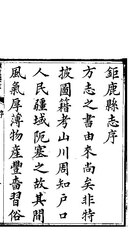 鉅鹿縣志序
方志之書由來尚矣非特
披圖籍考山川周知戶口
人民疆域阨塞之故其間
風氣厚薄物產豐嗇習俗